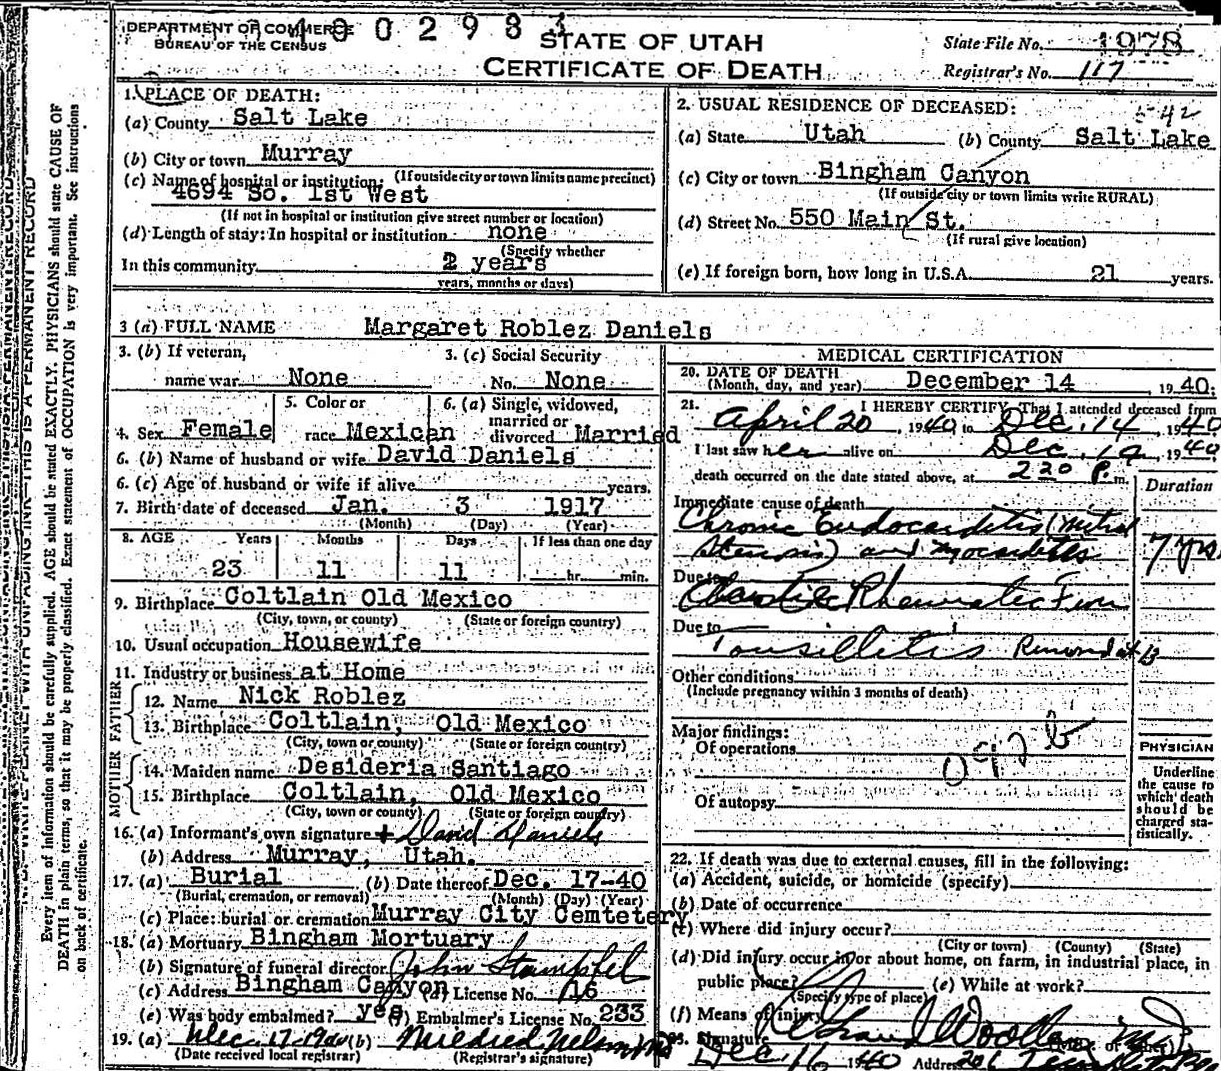 DEPARTMENT OF COMMERCE
BUREAU OF THE CENSUS
STATE OF UTAH
CERTIFICATE OF DEATH
State File No. 1978
Registrar's No. 117
1. PLACE OF DEATH:
(a) County Salt Lake
(b) City or town Murray
(If outside city or town limits name precinct)
(c) Name of hospital or institution:
4694 So. 1st West
(If not in hospital or institution give street number or location)
(d) Length of stay: In hospital or institution none
(Specify whether
In this community 2 years
years, months or days)
2. USUAL RESIDENCE OF DECEASED:
(a) State Utah (b) County Salt Lake
(c) City or town Bingham Canyon
(If outside city or town limits write RURAL)
(d) Street No. 550 Main St.
(If rural give location)
(e) If foreign born, how long in U.S.A. 21 years.
3 (a) FULL NAME Margaret Roblez Daniels
3. (b) If veteran, name war None
3. (c) Social Security No. None
4. Sex Female
5. Color or race Mexican
6. (a) Single, widowed, married or divorced Married
6. (b) Name of husband or wife David Daniels
6. (c) Age of husband or wife if alive years.
7. Birth date of deceased Jan. 3 1917
(Month) (Day) (Year)
8. AGE Years Months Days If less than one day
23 11 11 hr. min.
9. Birthplace Coltlain Old Mexico
(City, town, or county) (State or foreign country)
10. Usual occupation Housewife
11. Industry or business at Home
FATHER
12. Name Nick Roblez
13. Birthplace Coltlain, Old Mexico
(City, town or county) (State or foreign country)
MOTHER
14. Maiden name Desideria Santiago
15. Birthplace Coltlain, Old Mexico
(City, town or county) (State or foreign country)
16. (a) Informant's own signature David Daniels
(b) Address Murray, Utah.
17. (a) Burial (b) Date thereof Dec. 17-40
(Burial, cremation, or removal) (Month) (Day) (Year)
(c) Place: burial or cremation Murray City Cemtetery
18. (a) Mortuary Bingham Mortuary
(b) Signature of funeral director John Stampfel
(c) Address Bingham Canyon (d) License No. 116
(e) Was body embalmed? yes (f) Embalmer's License No. 233
19. (a) Dec. 17-1940 (b) Mildred Nelson
(Date received local registrar) (Registrar's signature)
MEDICAL CERTIFICATION
20. DATE OF DEATH
(Month, day, and year) December 14 1940.
21. I HEREBY CERTIFY, That I attended deceased from
April 20, 1940 to Dec. 14, 1940
I last saw her alive on Dec. 1940
death occurred on the date stated above, at 2 20 P. m.
Duration
Immediate cause of death
Chronic Endocarditis (mitral
stenosis) and myocarditis 7 yrs
Due to Rheumatic Fever
Due to Tonsillitis
Other conditions
(Include pregnancy within 3 months of death)
Major findings:
Of operations
092 b
Of autopsy
PHYSICIAN
Underline the cause to which death should be charged statistically.
22. If death was due to external causes, fill in the following:
(a) Accident, suicide, or homicide (specify)
(b) Date of occurrence
(c) Where did injury occur?
(City or town) (County) (State)
(d) Did injury occur in or about home, on farm, in industrial place, in
public place? (e) While at work?
(Specify type of place)
(f) Means of injury
23. Signature
Dec 16 1940 Address
Every item of information should be carefully supplied. AGE should be stated EXACTLY. PHYSICIANS should state CAUSE OF
DEATH in plain terms, so that it may be properly classified. Exact statement of OCCUPATION is very important. See instructions
on back of certificate.